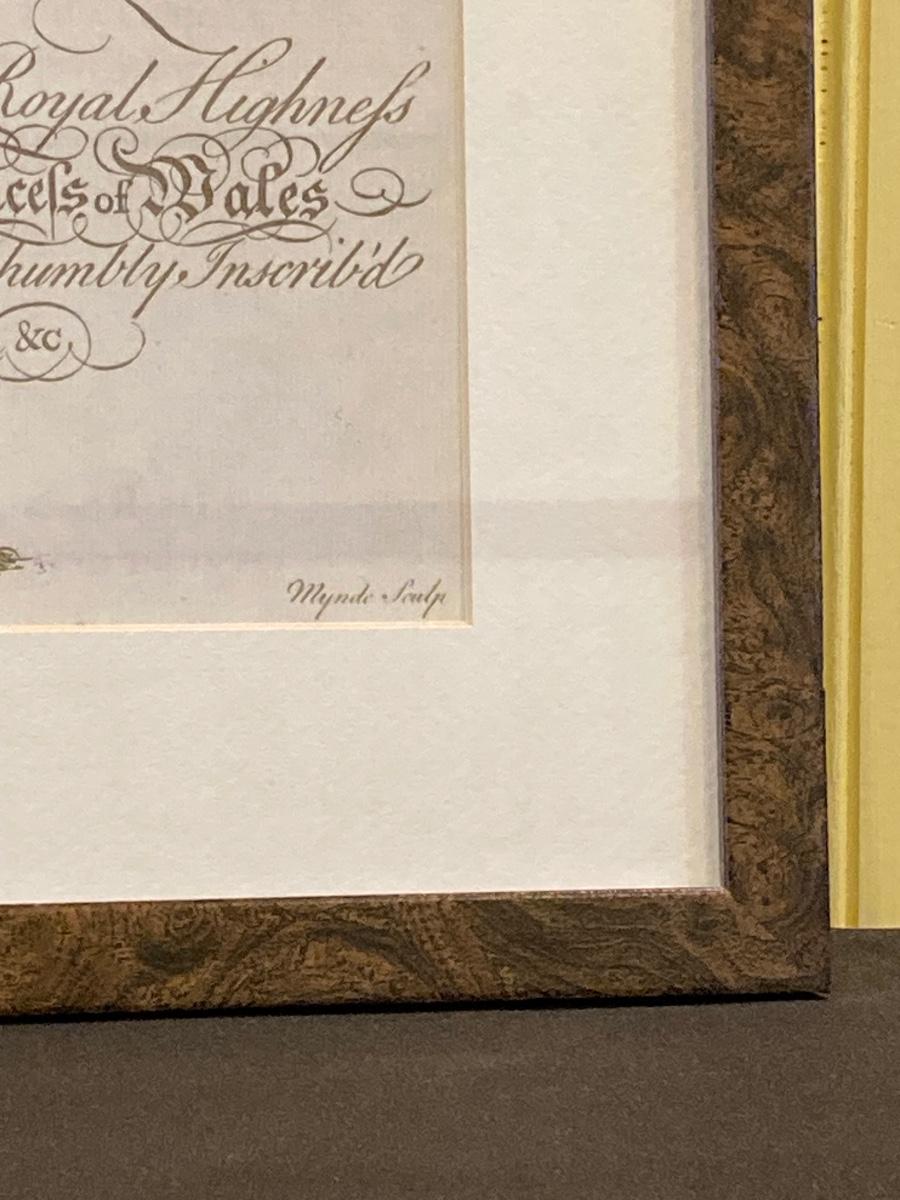 Royal Highneſs
ceſs of Wales
humbly Inscrib'd
&c.
Mynde Sculp